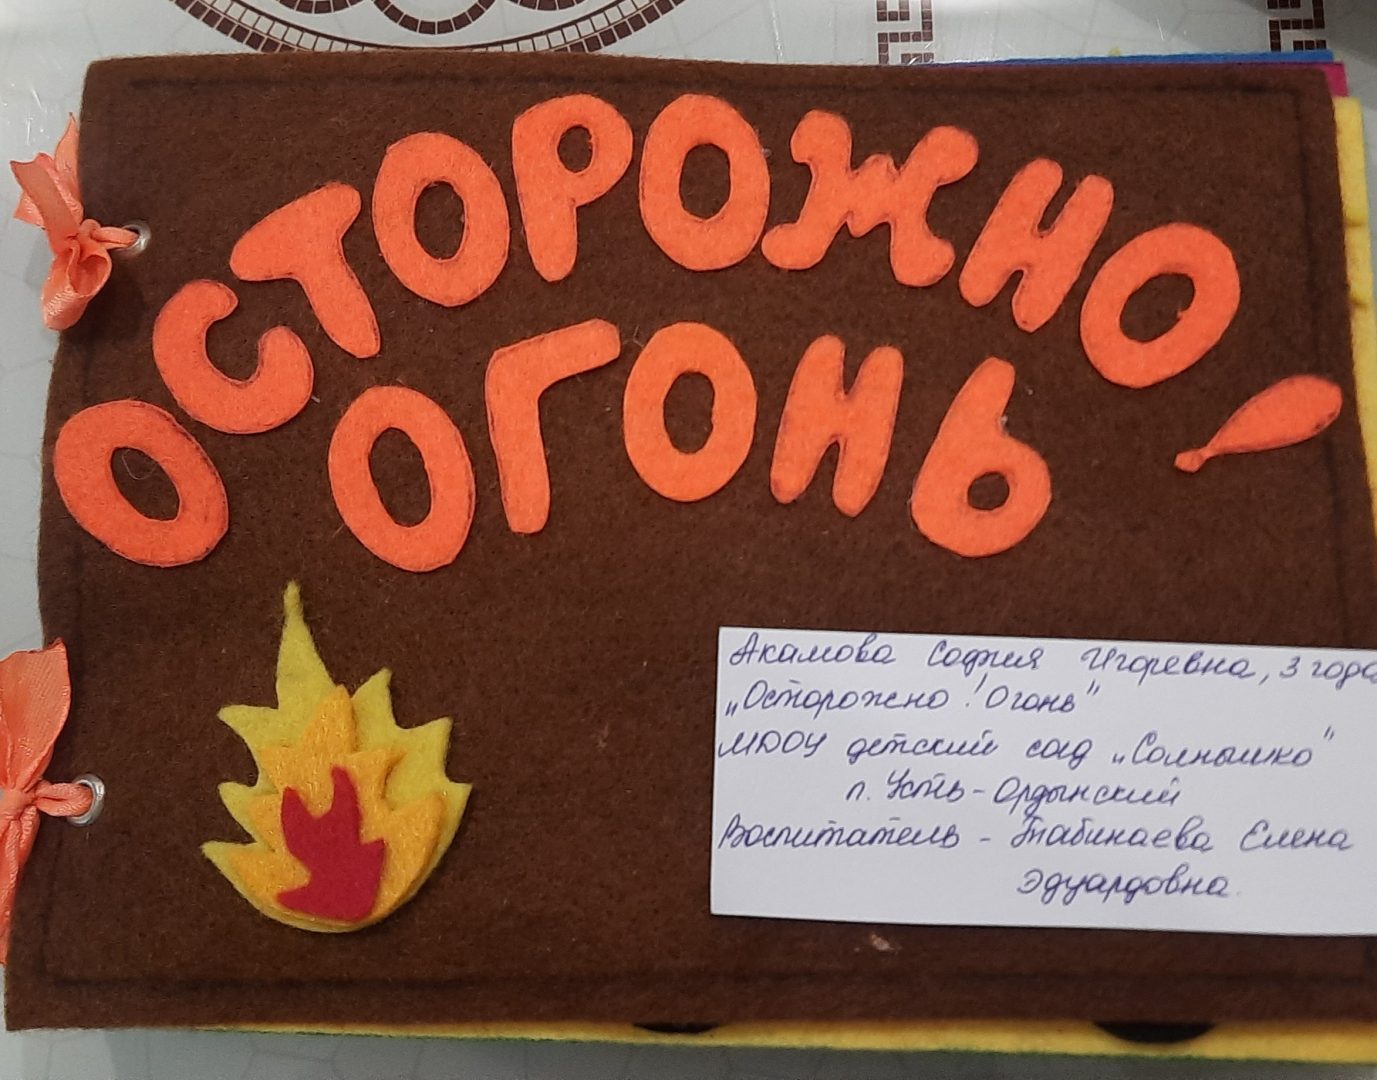 ОСТОРОЖНО
ОГОНЬ!
Акамова София Игоревна, 3 года
„Осторожно! Огонь"
МДОУ детский сад „Солнышко"
п. Усть-Ордынский
Воспитатель - Табинаева Елена
Эдуардовна.